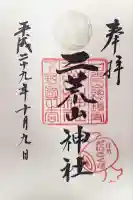 奉拝
二荒山神社
平成二十九年十月九日